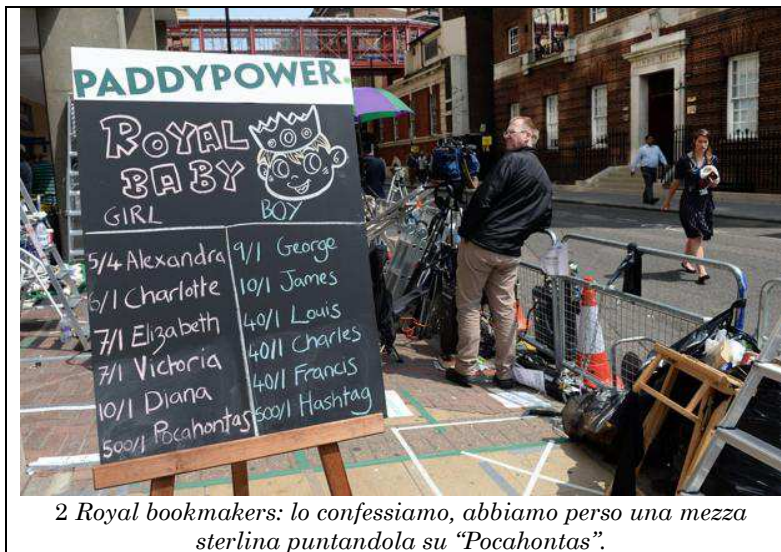 PADDYPOWER.
ROYAL
BABY
GIRL
BOY
5/4 Alexandra
6/1 Charlotte
7/1 Elizabeth
7/1 Victoria
10/1 Diana
500/1 Pocahontas
9/1 George
10/1 James
40/1 Louis
40/1 Charles
40/1 Francis
500/1 Hashtag
2 Royal bookmakers: lo confessiamo, abbiamo perso una mezza
sterlina puntandola su “Pocahontas”.